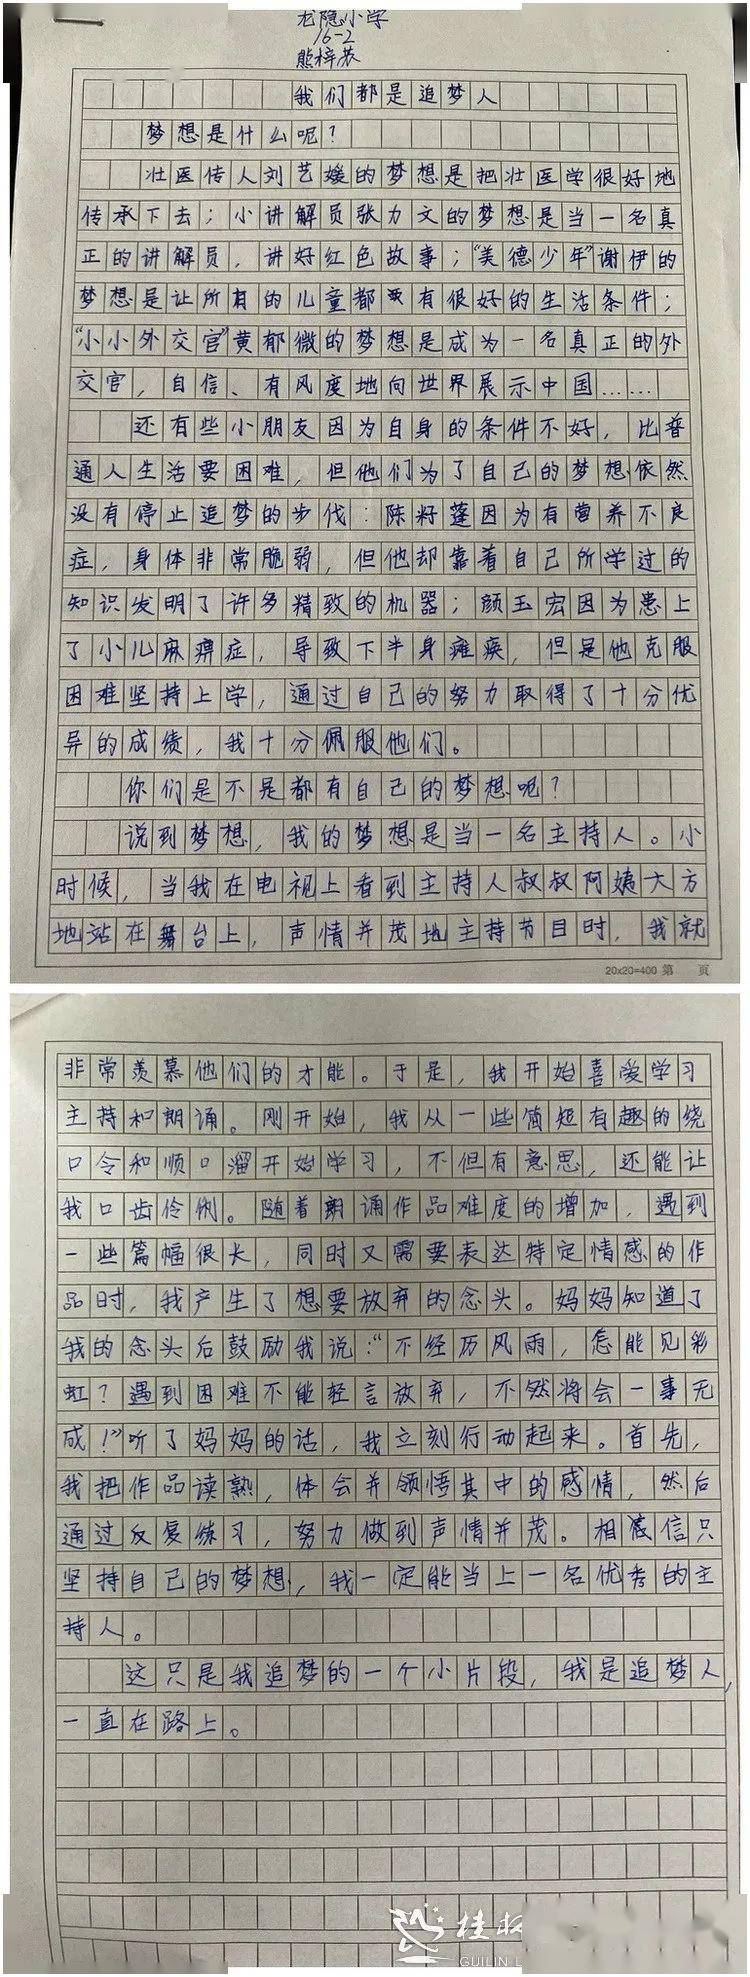 龙隐小学
16-2
熊梓苏
我们都是追梦人
梦想是什么呢？
壮医传人刘艺媛的梦想是把壮医学很好地
传承下去；小讲解员张力文的梦想是当一名真
正的讲解员，讲好红色故事；“美德少年”谢伊的
梦想是让所有的儿童都有很好的生活条件；
“小小外交官”黄郁微的梦想是成为一名真正的外
交官，自信、有风度地向世界展示中国……
还有些小朋友因为自身的条件不好，比普
通人生活要困难，但他们为了自己的梦想依然
没有停止追梦的步伐：陈籽蓬因为有营养不良
症，身体非常脆弱，但他却靠着自己所学过的
知识发明了许多精致的机器；颜玉宏因为患上
了小儿麻痹症，导致下半身瘫痪，但是他克服
困难坚持上学，通过自己的努力取得了十分优
异的成绩，我十分佩服他们。
你们是不是都有自己的梦想呢？
说到梦想，我的梦想是当一名主持人。小
时候，当我在电视上看到主持人叔叔阿姨大方
地站在舞台上，声情并茂地主持节目时，我就
20x20=400 第 页
非常羡慕他们的才能。于是，我开始喜爱学习
主持和朗诵。刚开始，我从一些简短有趣的绕
口令和顺口溜开始学习，不但有意思，还能让
我口齿伶俐。随着朗诵作品难度的增加，遇到
一些篇幅很长，同时又需要表达特定情感的作
品时，我产生了想要放弃的念头。妈妈知道了
我的念头后鼓励我说：“不经历风雨，怎能见彩
虹？遇到困难不能轻言放弃，不然将会一事无
成！”听了妈妈的话，我立刻行动起来。首先，
我把作品读熟，体会并领悟其中的感情，然后
通过反复练习，努力做到声情并茂。相信只
坚持自己的梦想，我一定能当上一名优秀的主
持人。
这只是我追梦的一个小片段，我是追梦人，
一直在路上。
桂
GUILIN L